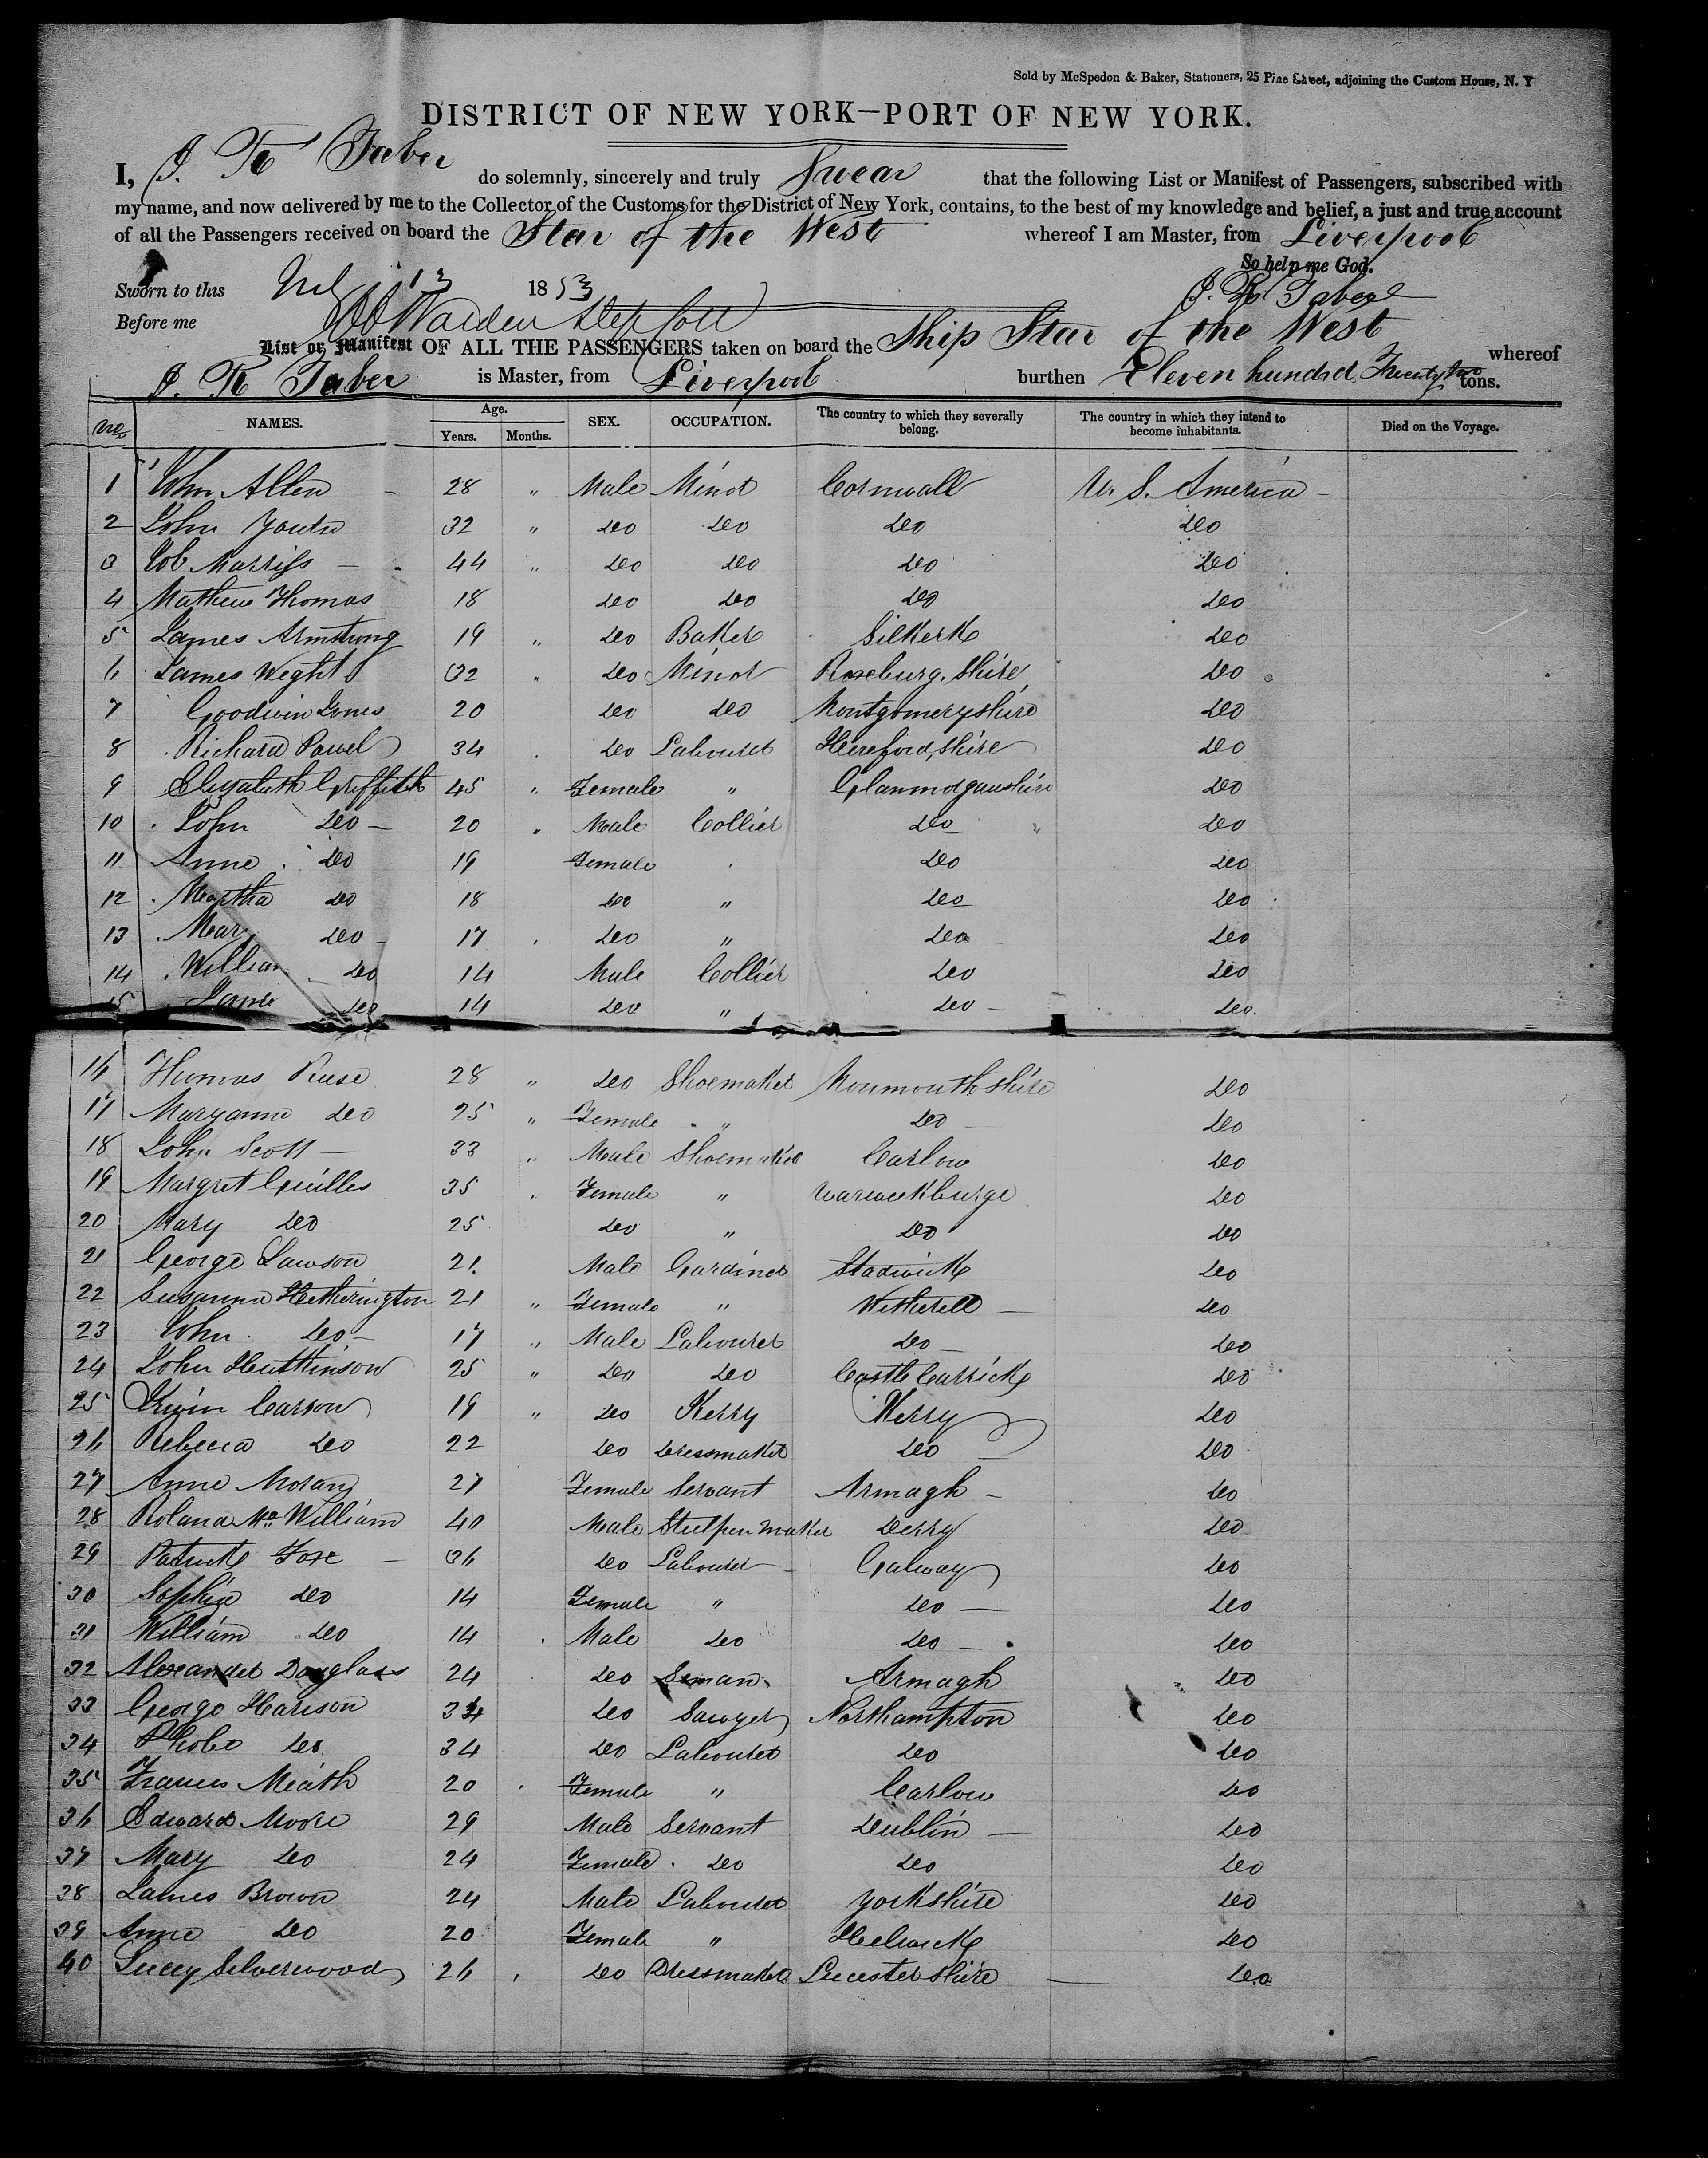 Sold by McSpedon & Baker, Stationers, 25 Pine Street, adjoining the Custom House, N. Y
DISTRICT OF NEW YORK—PORT OF NEW YORK.
I, J. R Taber do solemnly, sincerely and truly Swear that the following List or Manifest of Passengers, subscribed with
my name, and now delivered by me to the Collector of the Customs for the District of New York, contains, to the best of my knowledge and belief, a just and true account
of all the Passengers received on board the Star of the West whereof I am Master, from Liverpool
So help me God.
Sworn to this 13 1853 J. R Taber
Before me
List or Manifest OF ALL THE PASSENGERS taken on board the Ship Star of the West whereof
J. R Taber is Master, from Liverpool burthen Eleven hundred Twenty two tons.
No. NAMES. Age. Years. Months. SEX. OCCUPATION. The country to which they severally belong. The country in which they intend to become inhabitants. Died on the Voyage.
1 John Allen 28 " Male Minor Cornwall U. S. America
2 John 32 " Do Do Do Do
3 Job Marriss 44 " Do Do Do Do
4 Mathew Thomas 18 Do Do Do Do
5 James Armstrong 19 " Do Baker Silkerk Do
6 James Weght 32 " Do Minor Roxburg.Shire Do
7 Goodwin Jones 20 Do Do Montgomeryshire Do
8 Richard Powel 34 Do Labourer Hereford,Shire Do
9 Elizabeth Griffith 45 " Female " Glanmorganshire Do
10 John Do 20 " Male Collier Do Do
11 Anne Do 19 Female Do Do
12 Martha Do 18 Do " Do Do
13 Mary Do 17 Do " Do Do
14 William Do 14 Male Collier Do Do
15 Do 14 Do " Do Do
16 Thomas Reese 28 " Do Shoemaker Monmouthshire Do
17 Maryanne Do 25 " Female " Do Do
18 John Scott 33 " Male Shoemaker Carlow Do
19 Margret 35 Female " Do
20 Mary Do 25 Do " Do Do
21 George Lawson 21 Male Gardiner Do
22 Susanna Hetherington 21 " Female " Wetherell Do
23 John Do 17 " Male Labourer Do Do
24 John Huttkinson 25 " Do Do Castle Carrick Do
25 Carson 19 " Do Kerry Kerry Do
26 Rebecca Do 22 Do Dressmaker Do Do
27 Anne Moran 27 Female Servant Armagh Do
28 Roland Mc William 40 Male Steelpen maker Derry Do
29 Patrick Foxe 36 Do Labourer Galway Do
30 Sophia Do 14 Female " Do Do
31 William Do 14 Male Do Do Do
32 Alexander Douglass 24 Do Seman Armagh Do
33 George Harison 34 Do Sawyer Northampton Do
34 Phobe Do 34 Do Labourer Do Do
35 Frances Meath 20 Female " Carlow Do
36 Edward Moore 29 Male Servant Dublin Do
37 Mary Do 24 Female Do Do Do
38 James Brown 24 Male Labourer Yorkshire Do
39 Anne Do 20 Female " Do
40 Lucey Silverwood 26 Do Dressmaker Leicestershire Do